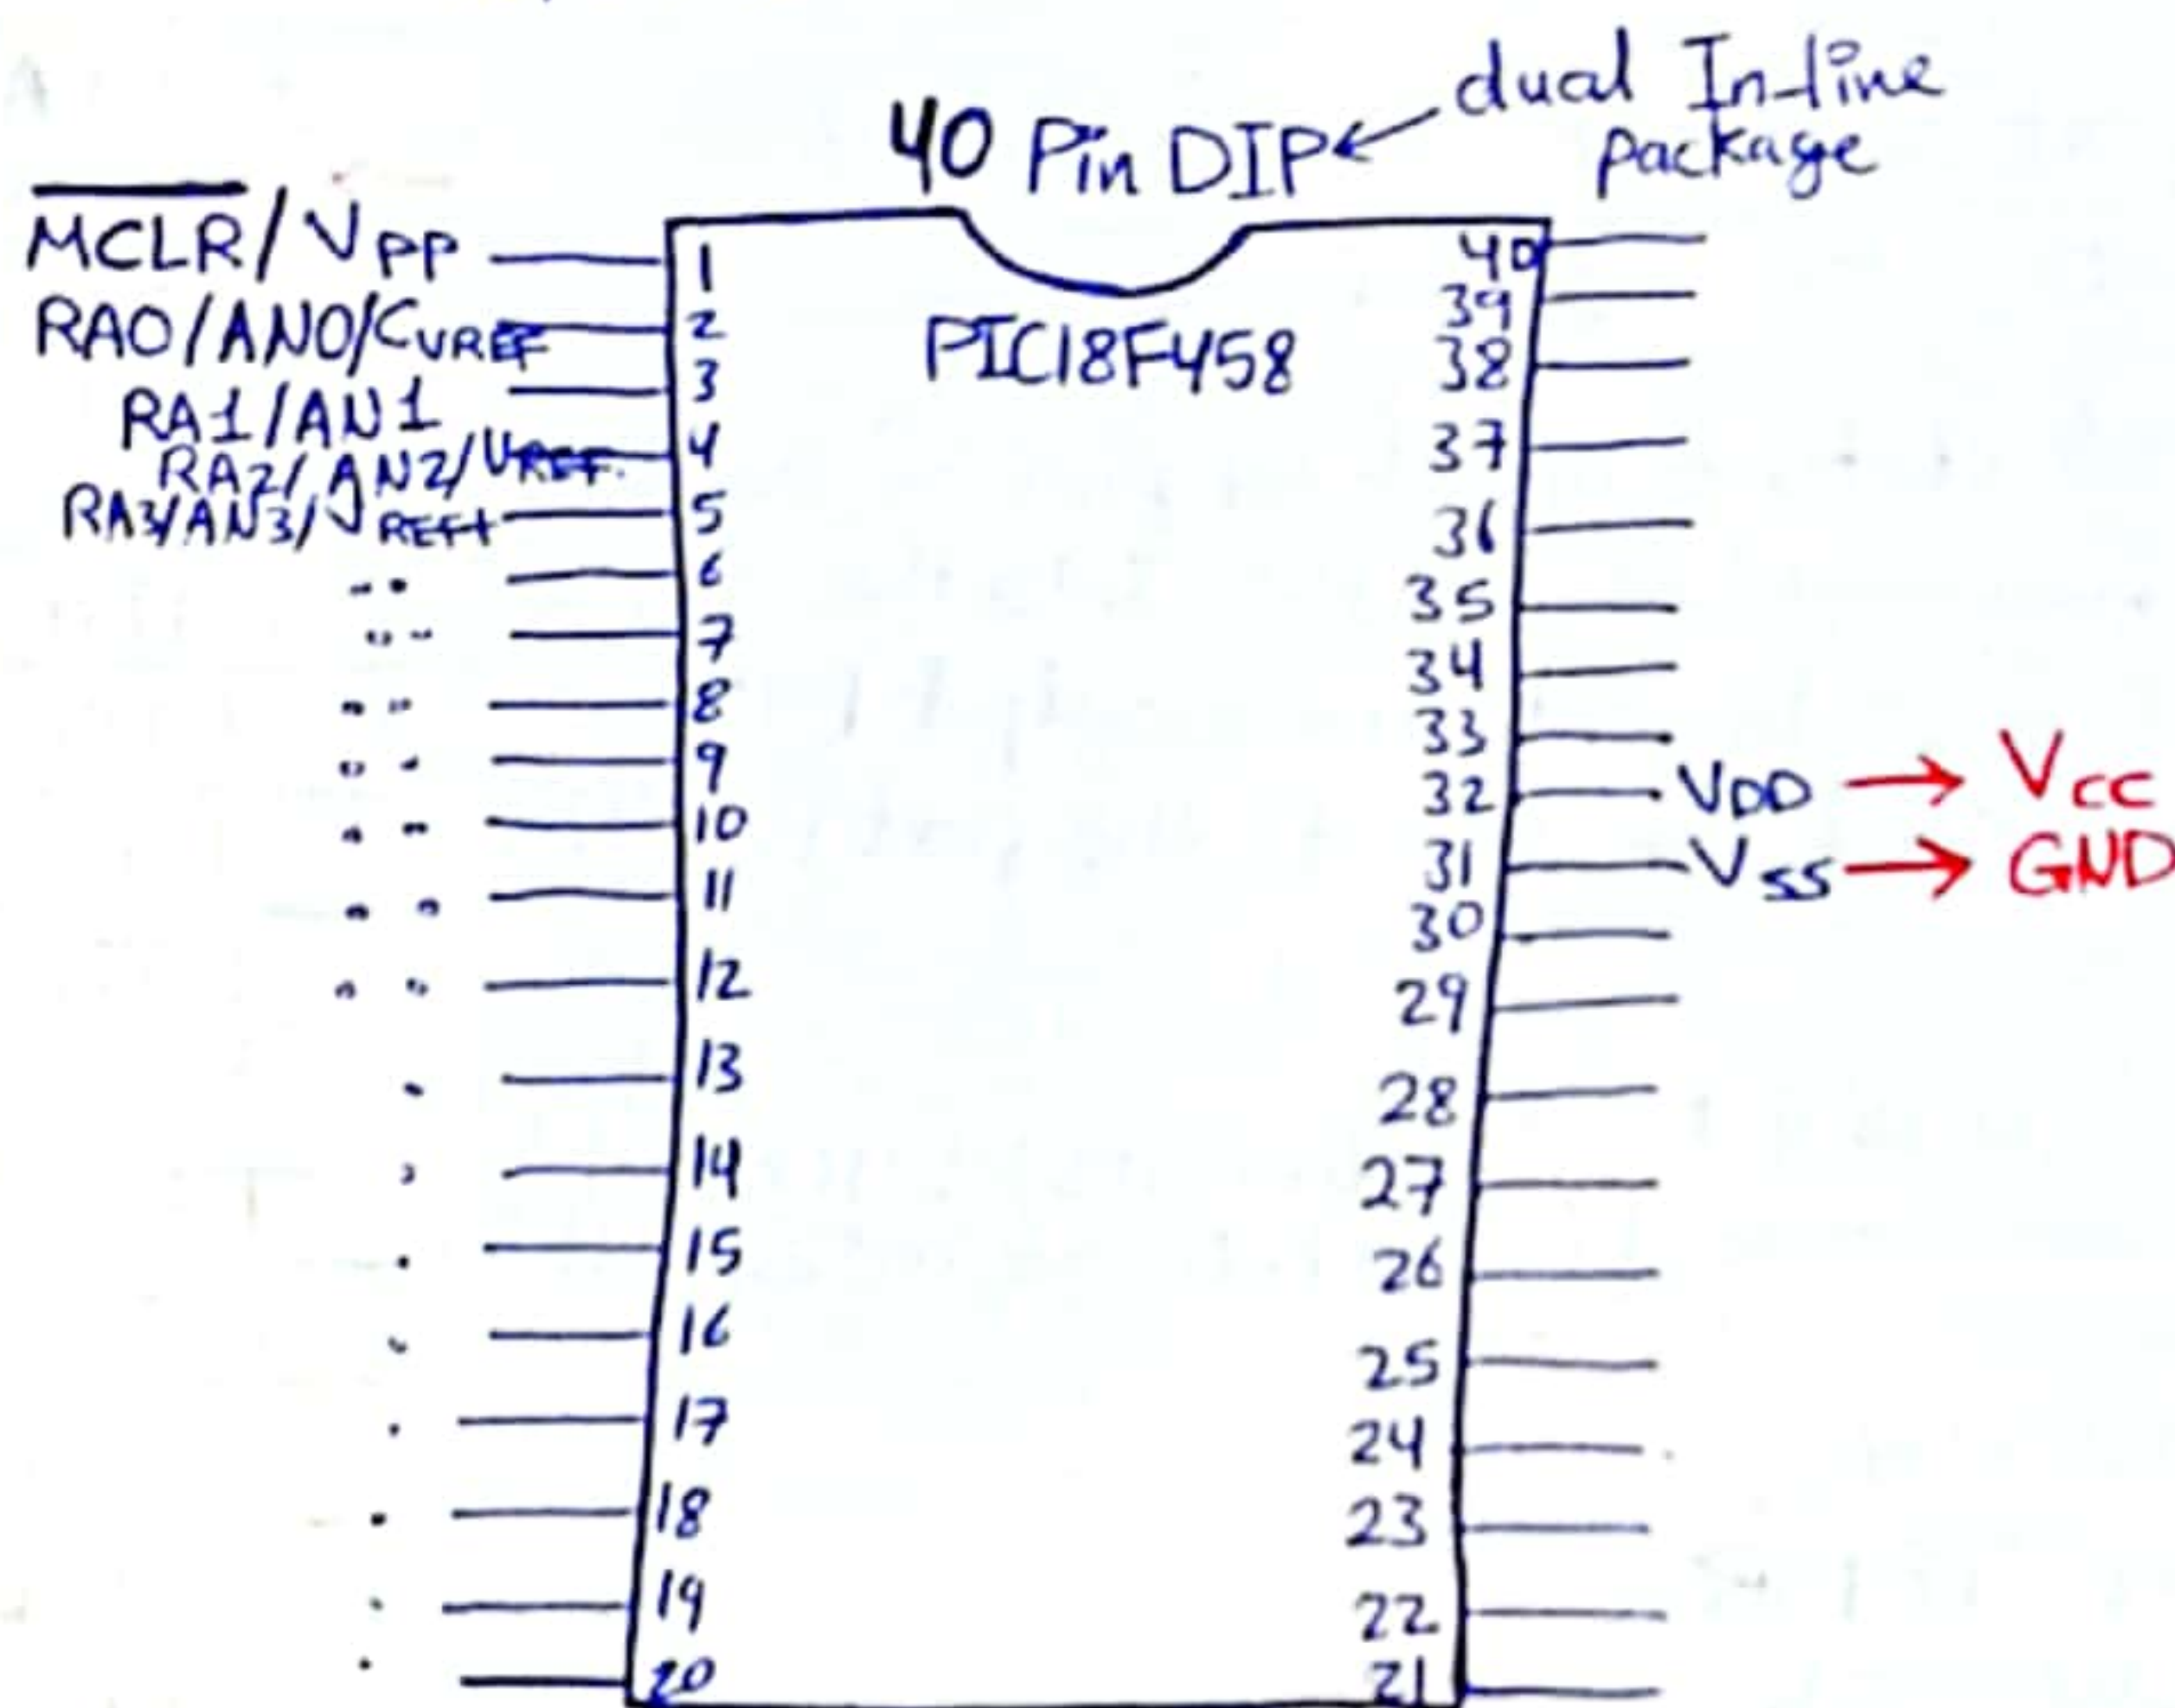 dual In-line
package
40 Pin DIP
PIC18F458
MCLR/VPP 1
RA0/AN0/CVREF 2
RA1/AN1 3
RA2/AN2/VREF- 4
RA3/AN3/VREF+ 5
6
7
8
9
10
11
12
13
14
15
16
17
18
19
20
40
39
38
37
36
35
34
33
32 VDD → VCC
31 VSS → GND
30
29
28
27
26
25
24
23
22
21